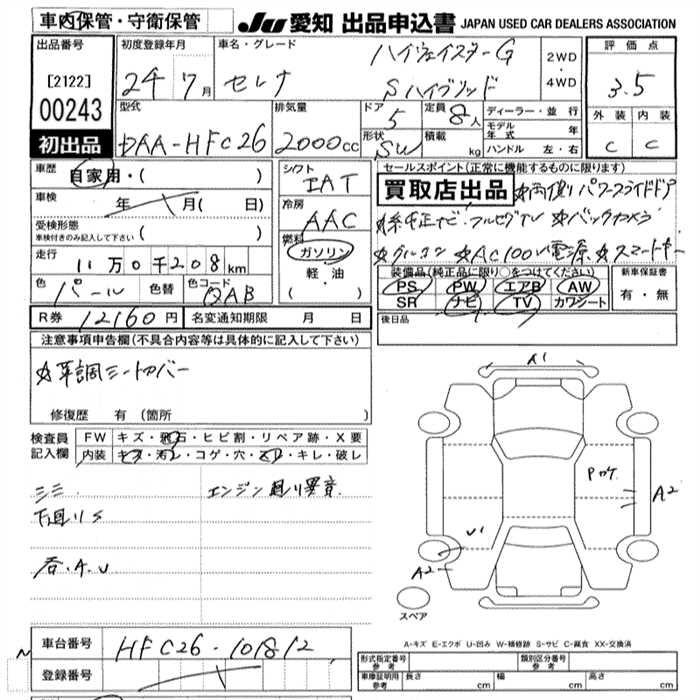 車両保管・守衛保管
JU 愛知 出品申込書 JAPAN USED CAR DEALERS ASSOCIATION
出品番号
[2122]
00243
初出品
初度登録年月
24年7月
車名・グレード
セレナ
ハイウェイスターG
Sハイブリッド
2WD
・
4WD
評価点
3.5
外装 内装
C C
型式
DAA-HFC26
排気量
2000cc
ドア
5
形状
SW
定員
8人
積載
kg
ディーラー・並行
モデル年式 年
ハンドル 左・右
車歴
自家用・( )
車検
年 月( 日)
受検形態
車検付きのみ記入して下さい ( )
走行
11万0千208km
色
パール
色替
色コード
QAB
シフト
IAT
冷房
AAC
燃料
ガソリン
軽・油
( )
セールスポイント(正常に機能するものに限ります)
買取店出品
☆両側パワースライドドア
☆純正ナビ・フルセグTV ☆バックカメラ
☆クルコン ☆AC100V電源 ☆スマートキー
装備品(純正品に限り○をつけてください)
PS PW エアB AW
SR ナビ TV カワシート
新車保証書
有・無
R券 12160円
名変通知期限 月 日
後日品
注意事項申告欄(不具合内容等は具体的に記入して下さい)
☆革調シートカバー
修復歴 有 (箇所 )
検査員
記入欄
FW キズ・飛石・ヒビ割・リペア跡・X要
内装 キズ・汚レ・コゲ・穴・スレ・キレ・破レ
エンジン廻り異音
下廻りS
各A.U
A1
Pカケ
A2
U1
A2
スペア
A-キズ E-エクボ U-凹み W-補修跡 S-サビ C-腐食 XX-交換済
車台番号
HFC26-101812
登録番号
N
形式指定番号
参考
類別区分番号
参考
車庫証明用
参考
長さ cm 幅 cm 高さ cm